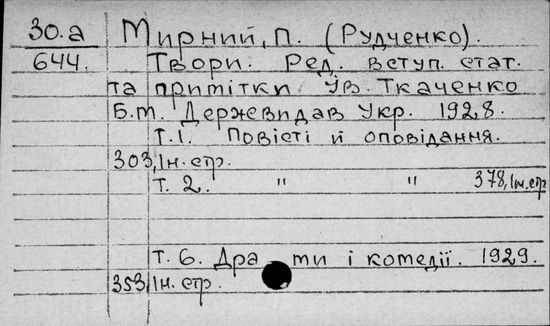 30.а Мирний, П. (Рудченко).
644. Твори. Ред. вступ. стат.
та примітки Ів. Ткаченко
Б.м. Державидав Укр. 1928.
Т.1. Повісті й оповідання.
303, Iн. стр.
т. 2. " " 378, Iн. стр
т. 6. Дра ти і комедії. 1929.
353, Iн. стр.